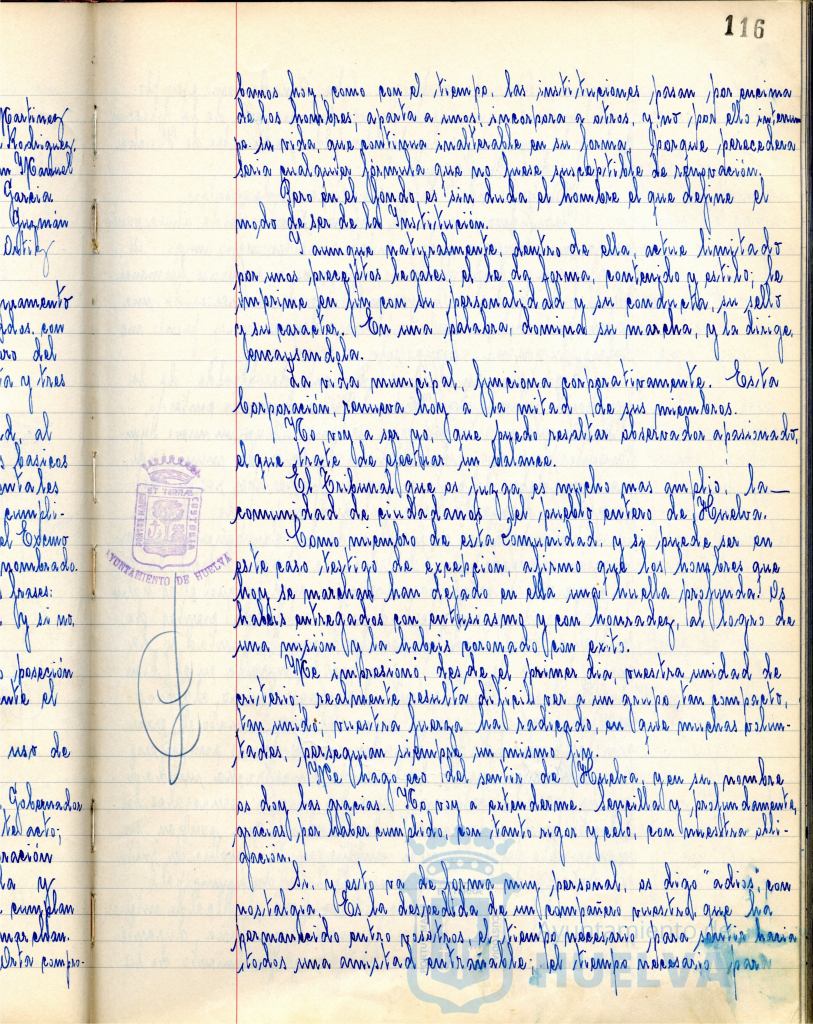 116
Martinez
Rodriguez.
Manuel
Garcia
Guzmán
Ortiz
juramento
con
del
y tres
al
basicos
cumpli-
el Excmo
nombrado.
frases:
y si no,
posesión
el
uso de
Gobernador
acto;
y
cumplan
marchan.
bamos hoy, como con el tiempo, las instituciones pasan por encima
de los hombres; aparta a unos, incorpora a otros, y no por ello interrum
pe su vida, que continua inalterable en su forma. Porque perecedera
seria cualquier fórmula que no fuese susceptible de renovación.
Pero en el fondo, es sin duda el hombre el que define el
modo de ser de la Institución.
Y aunque naturalmente, dentro de ella, actue limitado
por unos preceptos legales, el le da forma, contenido y estilo; le
imprime en fin con su personalidad y su conducta, su sello
y su caracter. En una palabra, domina su marcha, y la dirige,
encausandola.
La vida municipal, funciona corporativamente. Esta
Corporación, renueva hoy a la mitad de sus miembros.
No voy a ser yo, que puedo resultar observador apasionado,
el que trate de efectuar un balance.
El Tribunal que os juzga es mucho mas amplio, la
comunidad de ciudadanos, el pueblo entero de Huelva.
Como miembro de esta comunidad, y si puede ser en
este caso testigo de excepción, afirmo que los hombres que
hoy se marchan han dejado en ella una huella profunda. Os
habeis entregados con entusiasmo y con honradez, al logro de
una misión y la habeis coronado con exito.
Me impresionó, desde el primer dia, vuestra unidad de
criterio; realmente resulta dificil ver a un grupo tan compacto,
tan unido; vuestra fuerza ha radicado, en que muchas volun-
tades, perseguian siempre un mismo fin.
Me hago eco del sentir de Huelva, y en su nombre
os doy las gracias. No voy a extenderme. Sencilla y profundamente,
gracias por haber cumplido, con tanto rigor y celo, con nuestra obli-
gación.
Si, y esto va de forma muy personal, os digo "adios", con
nostalgia. Es la despedida de un compañero vuestro, que ha
permanecido entre vosotros el tiempo necesario para sentir hacia
todos una amistad entrañable; el tiempo necesario para
AYUNTAMIENTO DE HUELVA
PORTUS MARIS ET TERRAE CUSTODIA
Ayuntamiento de
HUELVA